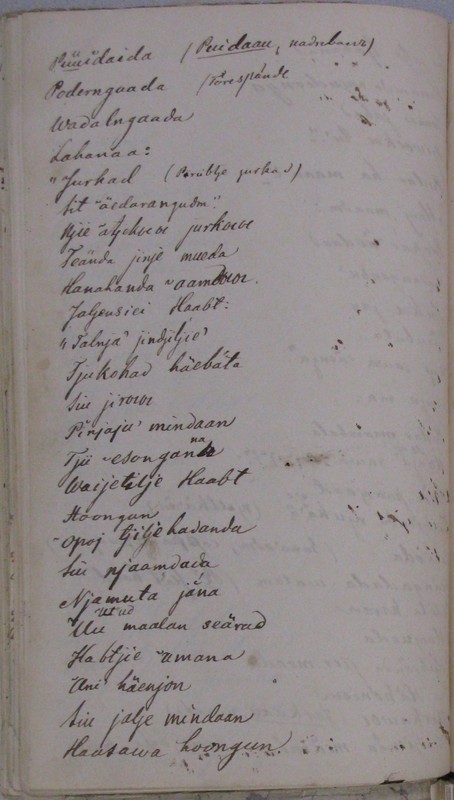 Püüdaida (Puidaau, nadubaue)
Poderngaada (Törespäade
Wadalngaada
Labanaa:
"Jurkad (Pörüblje jurkad)
Sit "äedarangudm"
Njie atjekowe jurkowe
Teända jinje mueda
Hanakanda "aamdowe.
Jaljeusiei Haabt:
"Talnja' jindjiljie'
Tjukohad häebäta
Siu jirowe
Pinjaju' mindaan
Tjii "esonganna
Waijetelje Haabt
Hoongun
"Opoj tjiljekadanda
Siu njaamdada
Njamuta jäna
"Uu maalan seärad
Habtjie "amana
"Ani' häenjon
Siu jalje mindaan
Haasawa hoongun.